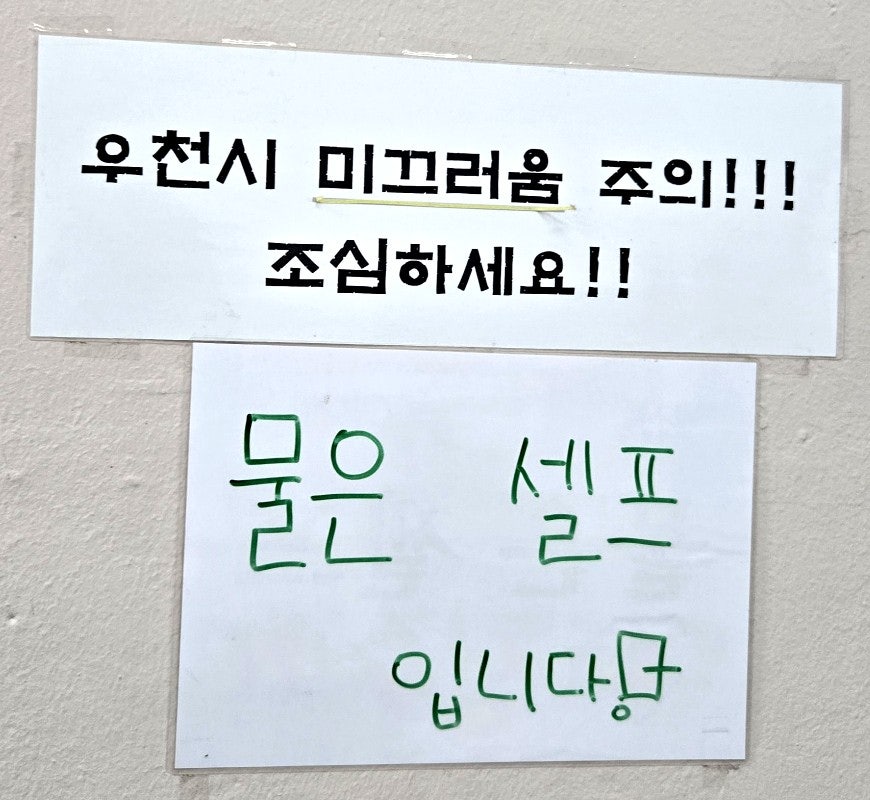 우천시 미끄러움 주의!!!
조심하세요!!
물은 셀프
입니다!